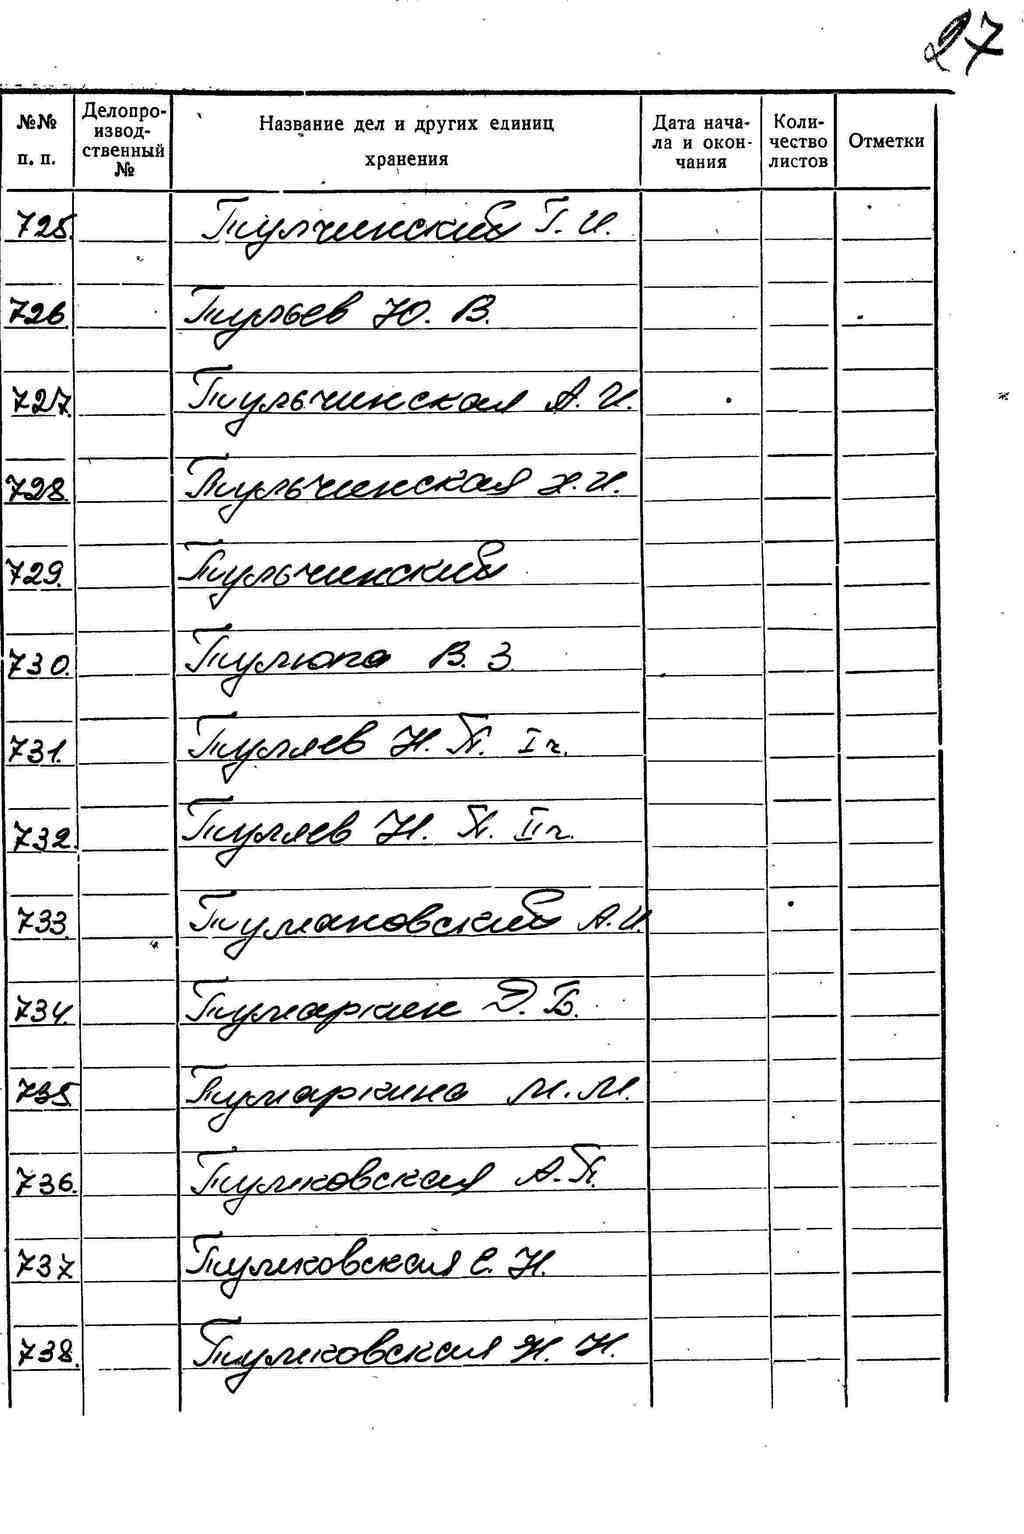 27
№№ п. п. Делопроизводственный № Название дел и других единиц хранения Дата начала и окончания Количество листов Отметки
725. Тулчинский Г. И.
726. Тульев Ю. В.
727. Тульчинская А. И.
728. Тульчинская Н. И.
729. Тульчинский
730. Тулюпа В. З.
731. Туляев Н. П. I ч.
732. Туляев Н. П. II ч.
733. Тумановский А. И.
734. Тумаркин Д. Б.
735. Тумаркина М. М.
736. Тумковская А. П.
737. Тумковская С. Н.
738. Тумковская Н. Н.